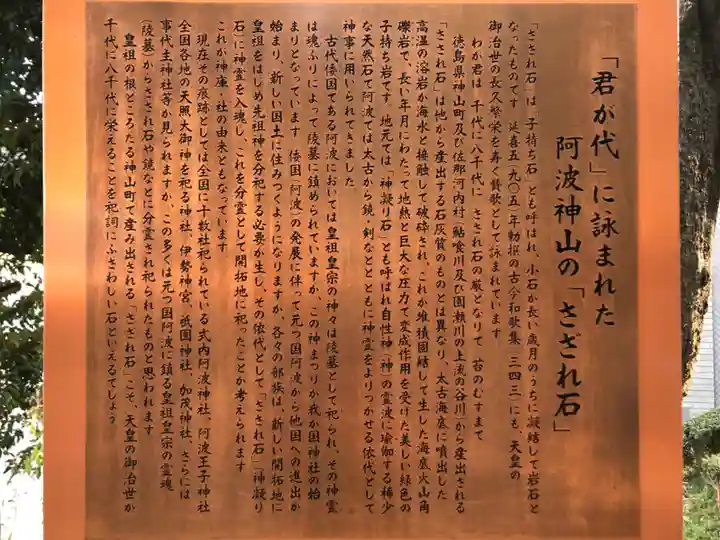 「君が代」に詠まれた
阿波神山の「さざれ石」
「さざれ石」は「子持ち石」とも呼ばれ、小石が長い歳月のうちに凝結して岩石と
なったものです 延喜五(九〇五)年勅撰の古今和歌集(三四三)にも、天皇の
御治世の長久繁栄を寿ぐ賛歌として詠まれています
わが君は 千代に八千代に さざれ石の巌となりて 苔のむすまて
徳島県神山町及び佐那河内村(鮎喰川及び園瀬川の上流の谷川)から産出される
「さざれ石」は他から産出する石灰質のものとは異なり、太古海底に噴出した
高温の溶岩が海水と接触して破砕され、これが堆積固結して生じた海底火山角
礫岩で、長い年月にわたって地熱と巨大な圧力で変成作用を受けた美しい緑色の
子持ち岩です。地元では「神凝り石」とも呼ばれ自性神(神)の霊波に瑜伽する稀少
な天然石で阿波では太古から鏡、剣などとともに神霊をよりつかせる依代として
神事に用いられてきました
古代倭国である阿波においては皇祖皇宗の神々は陵墓として祀られ、その神霊
は魂ふりによって陵墓に鎮められていますが、この神まつりが我が国神社の始
まりとなっています 倭国(阿波)の発展に伴って元つ国阿波から他国への進出が
始まり、新しい国土に住みつくようになりますが、各々の部族は、新しい開拓地に
皇祖をはじめ先祖神を分祀する必要が生じ、その依代として「さざれ石」(神凝り
石)に神霊を入魂し、これを分霊として開拓地に祀ったことが考えられます
これが神庫、社の由来ともなっています
現在その痕跡としては全国に十数社祀られている式内阿波神社、阿波王子神社
全国各地の天照大御神を祀る神社、伊勢神宮、祇園神社、加茂神社、さらには
事代主神社等が見られますが、この多くは元つ国阿波に鎮る皇祖皇宗の霊魂
(陵墓)からさざれ石や鏡などに分霊され祀られたものと思われます
皇祖の根ところたる神山町で産み出される「さざれ石」こそ、天皇の御治世が
千代に八千代に栄えることを祀詞にふさわしい石といえるでしょう